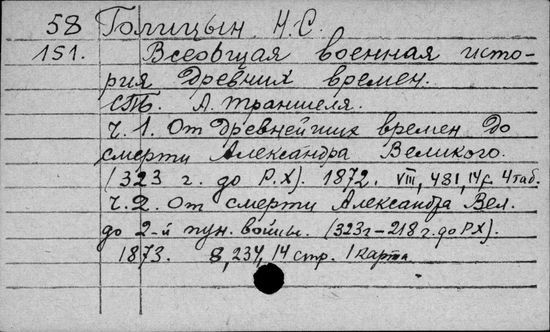 58 Голицын. Н.С.
151. Всеобщая военная исто-
рия Древних времен.
СПБ. А. Траншеля.
ч. 1. От Древнейших времен До
смерти Александра Великого.
(323 г. до Р.Х). 1872. VIII, 481, 14 с. 4 таб.
ч. 2. От смерти Александра Вел.
до 2-й пун. войны. (323 г - 218 г. до Р.Х).
1873. 8, 234, 14 стр. 1 карта